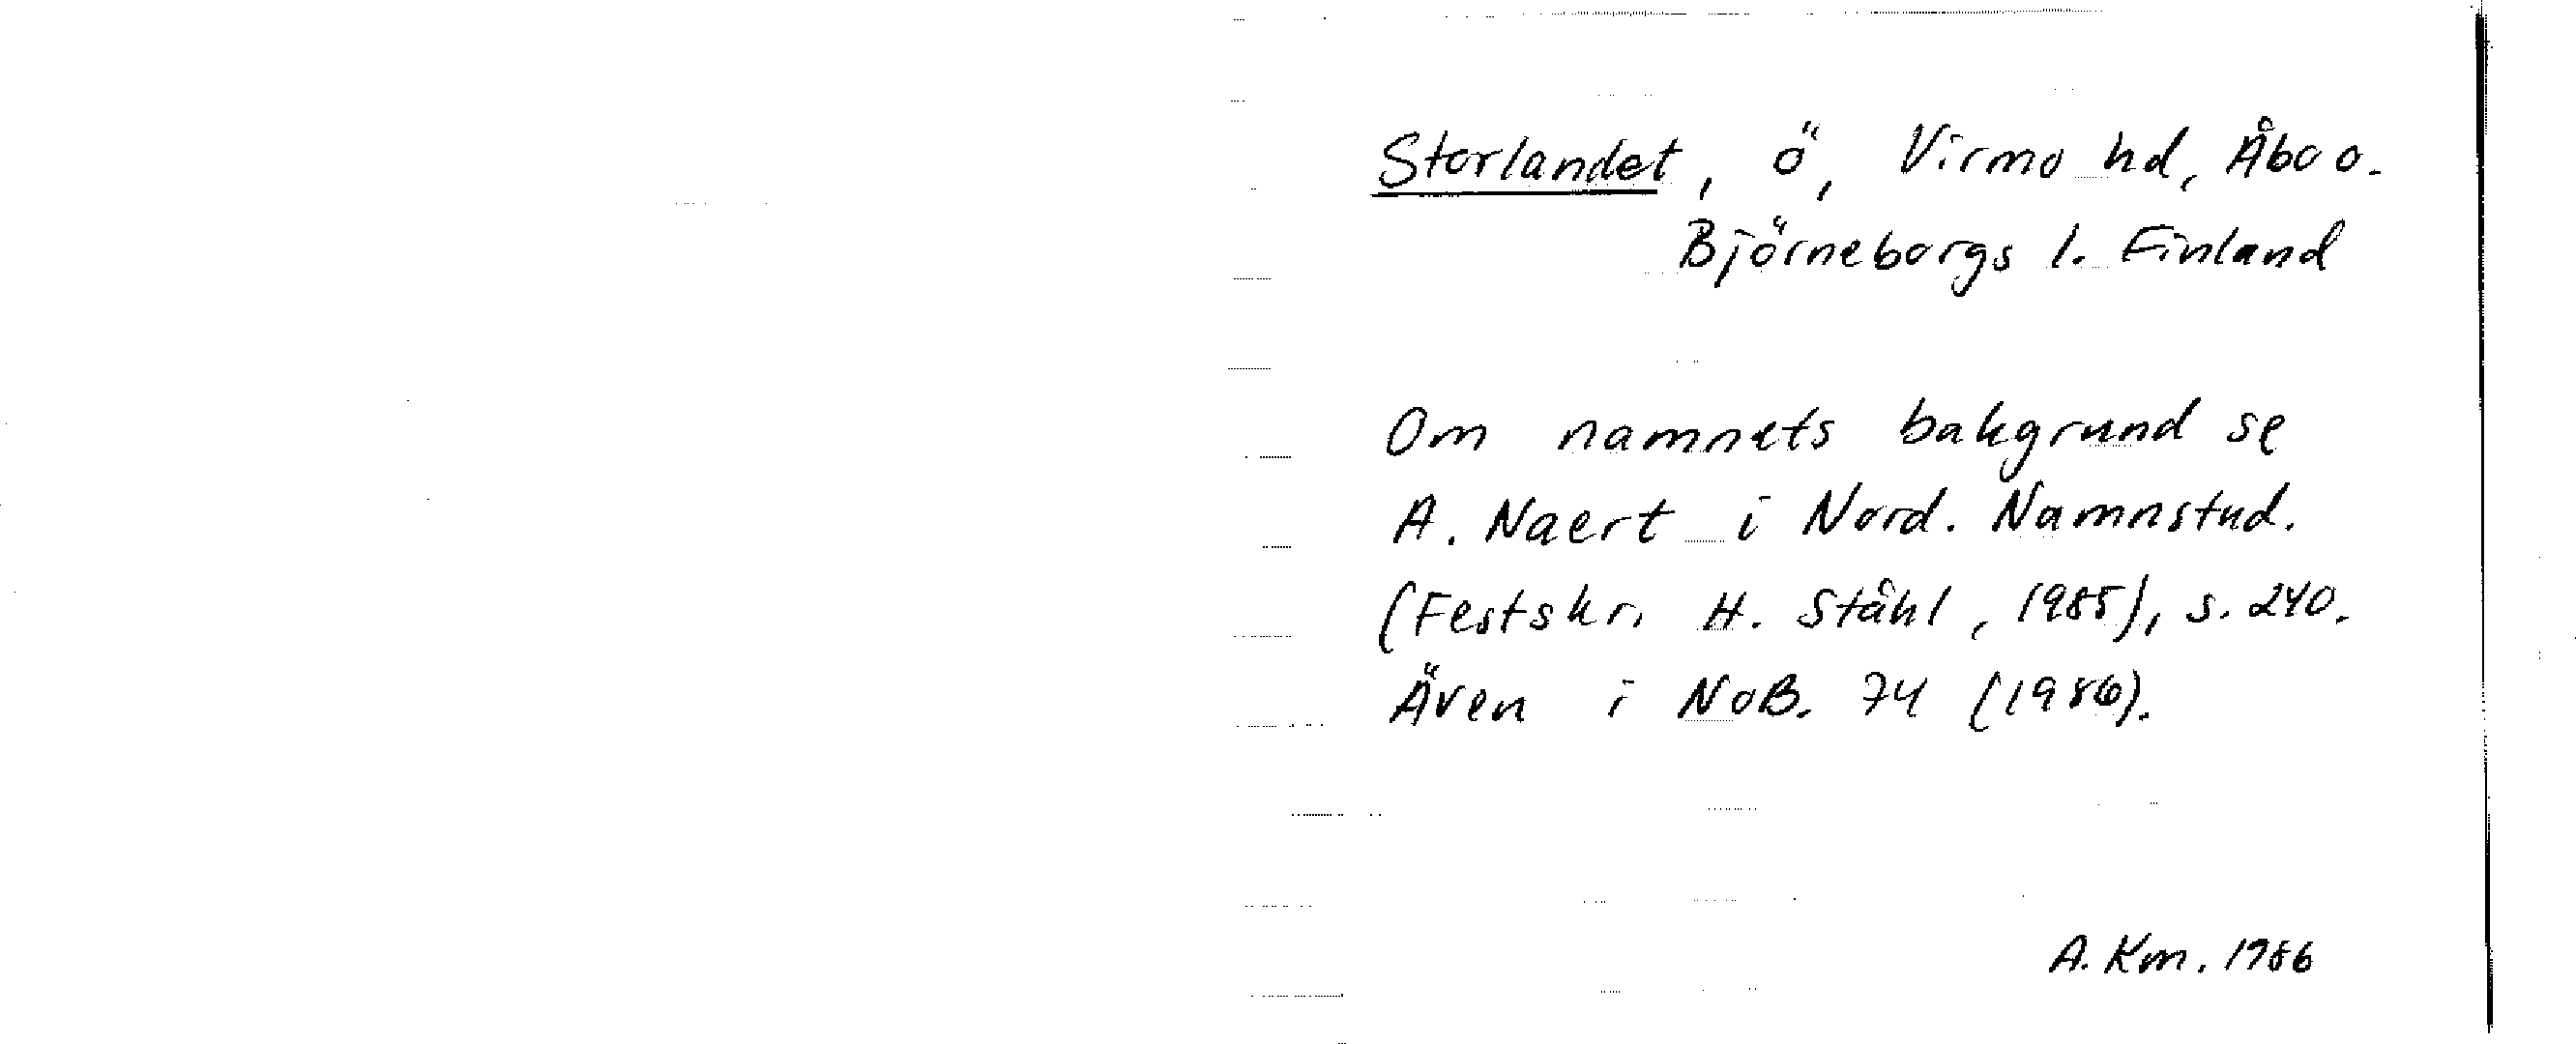 Storlandet, ö, Virmo hd, Åbo o.
Björneborgs l. Finland
Om namnets bakgrund se
A. Naert i Nord. Namnstud.
(Festskr. H. Ståhl, 1985), s. 240.
Även i NoB. 74 (1986).
A. Km. 1986